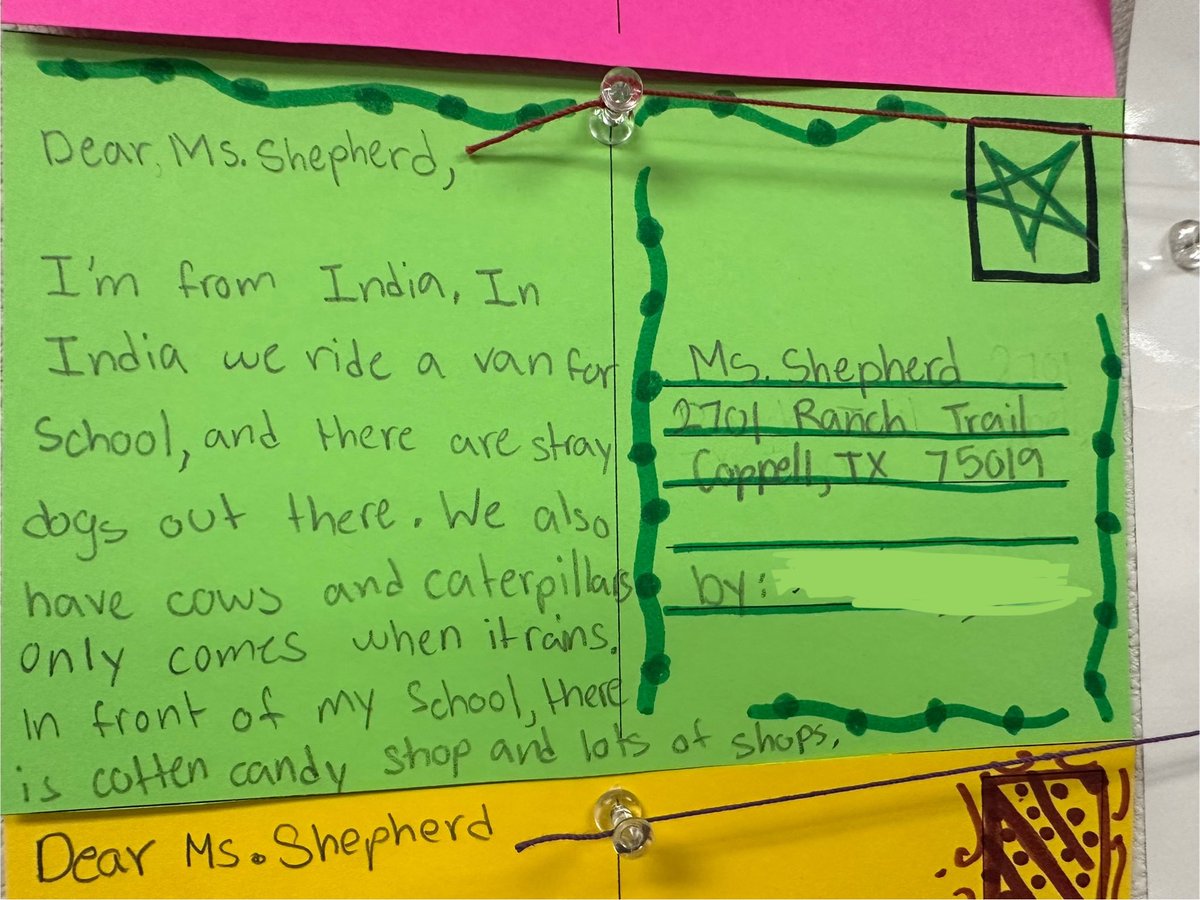 Dear, Ms. Shepherd,
I'm from India. In
India we ride a van for
School, and there are stray
dogs out there. We also
have cows and caterpillars
only comes when it rains.
In front of my School, there
is cotten candy shop and lots of shops.
Ms. Shepherd
2701 Ranch Trail
Coppell, TX 75019
by:
Dear Ms. Shepherd